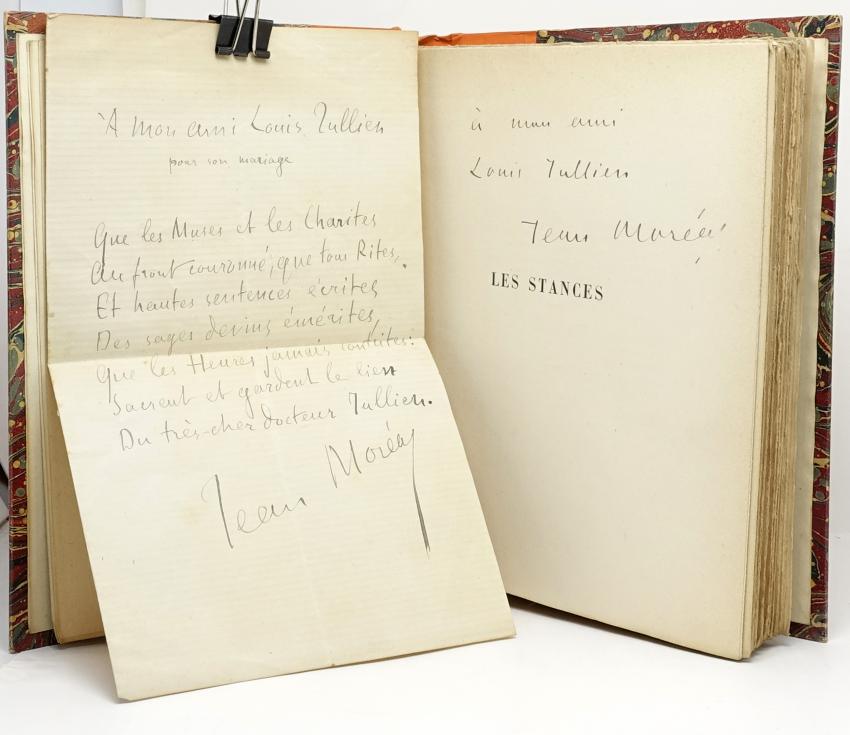 A mon ami Louis Jullien
pour son mariage
Que les Muses et les Charites
Au front couronné, que tous Rites,
Et hautes sentences écrites
Des sages devins émérites,
Que les Heures jamais contrites:
Sacrent et gardent le lien
Du très-cher docteur Jullien.
Jean Moréas
à mon ami
Louis Jullien
Jean Moréas
LES STANCES